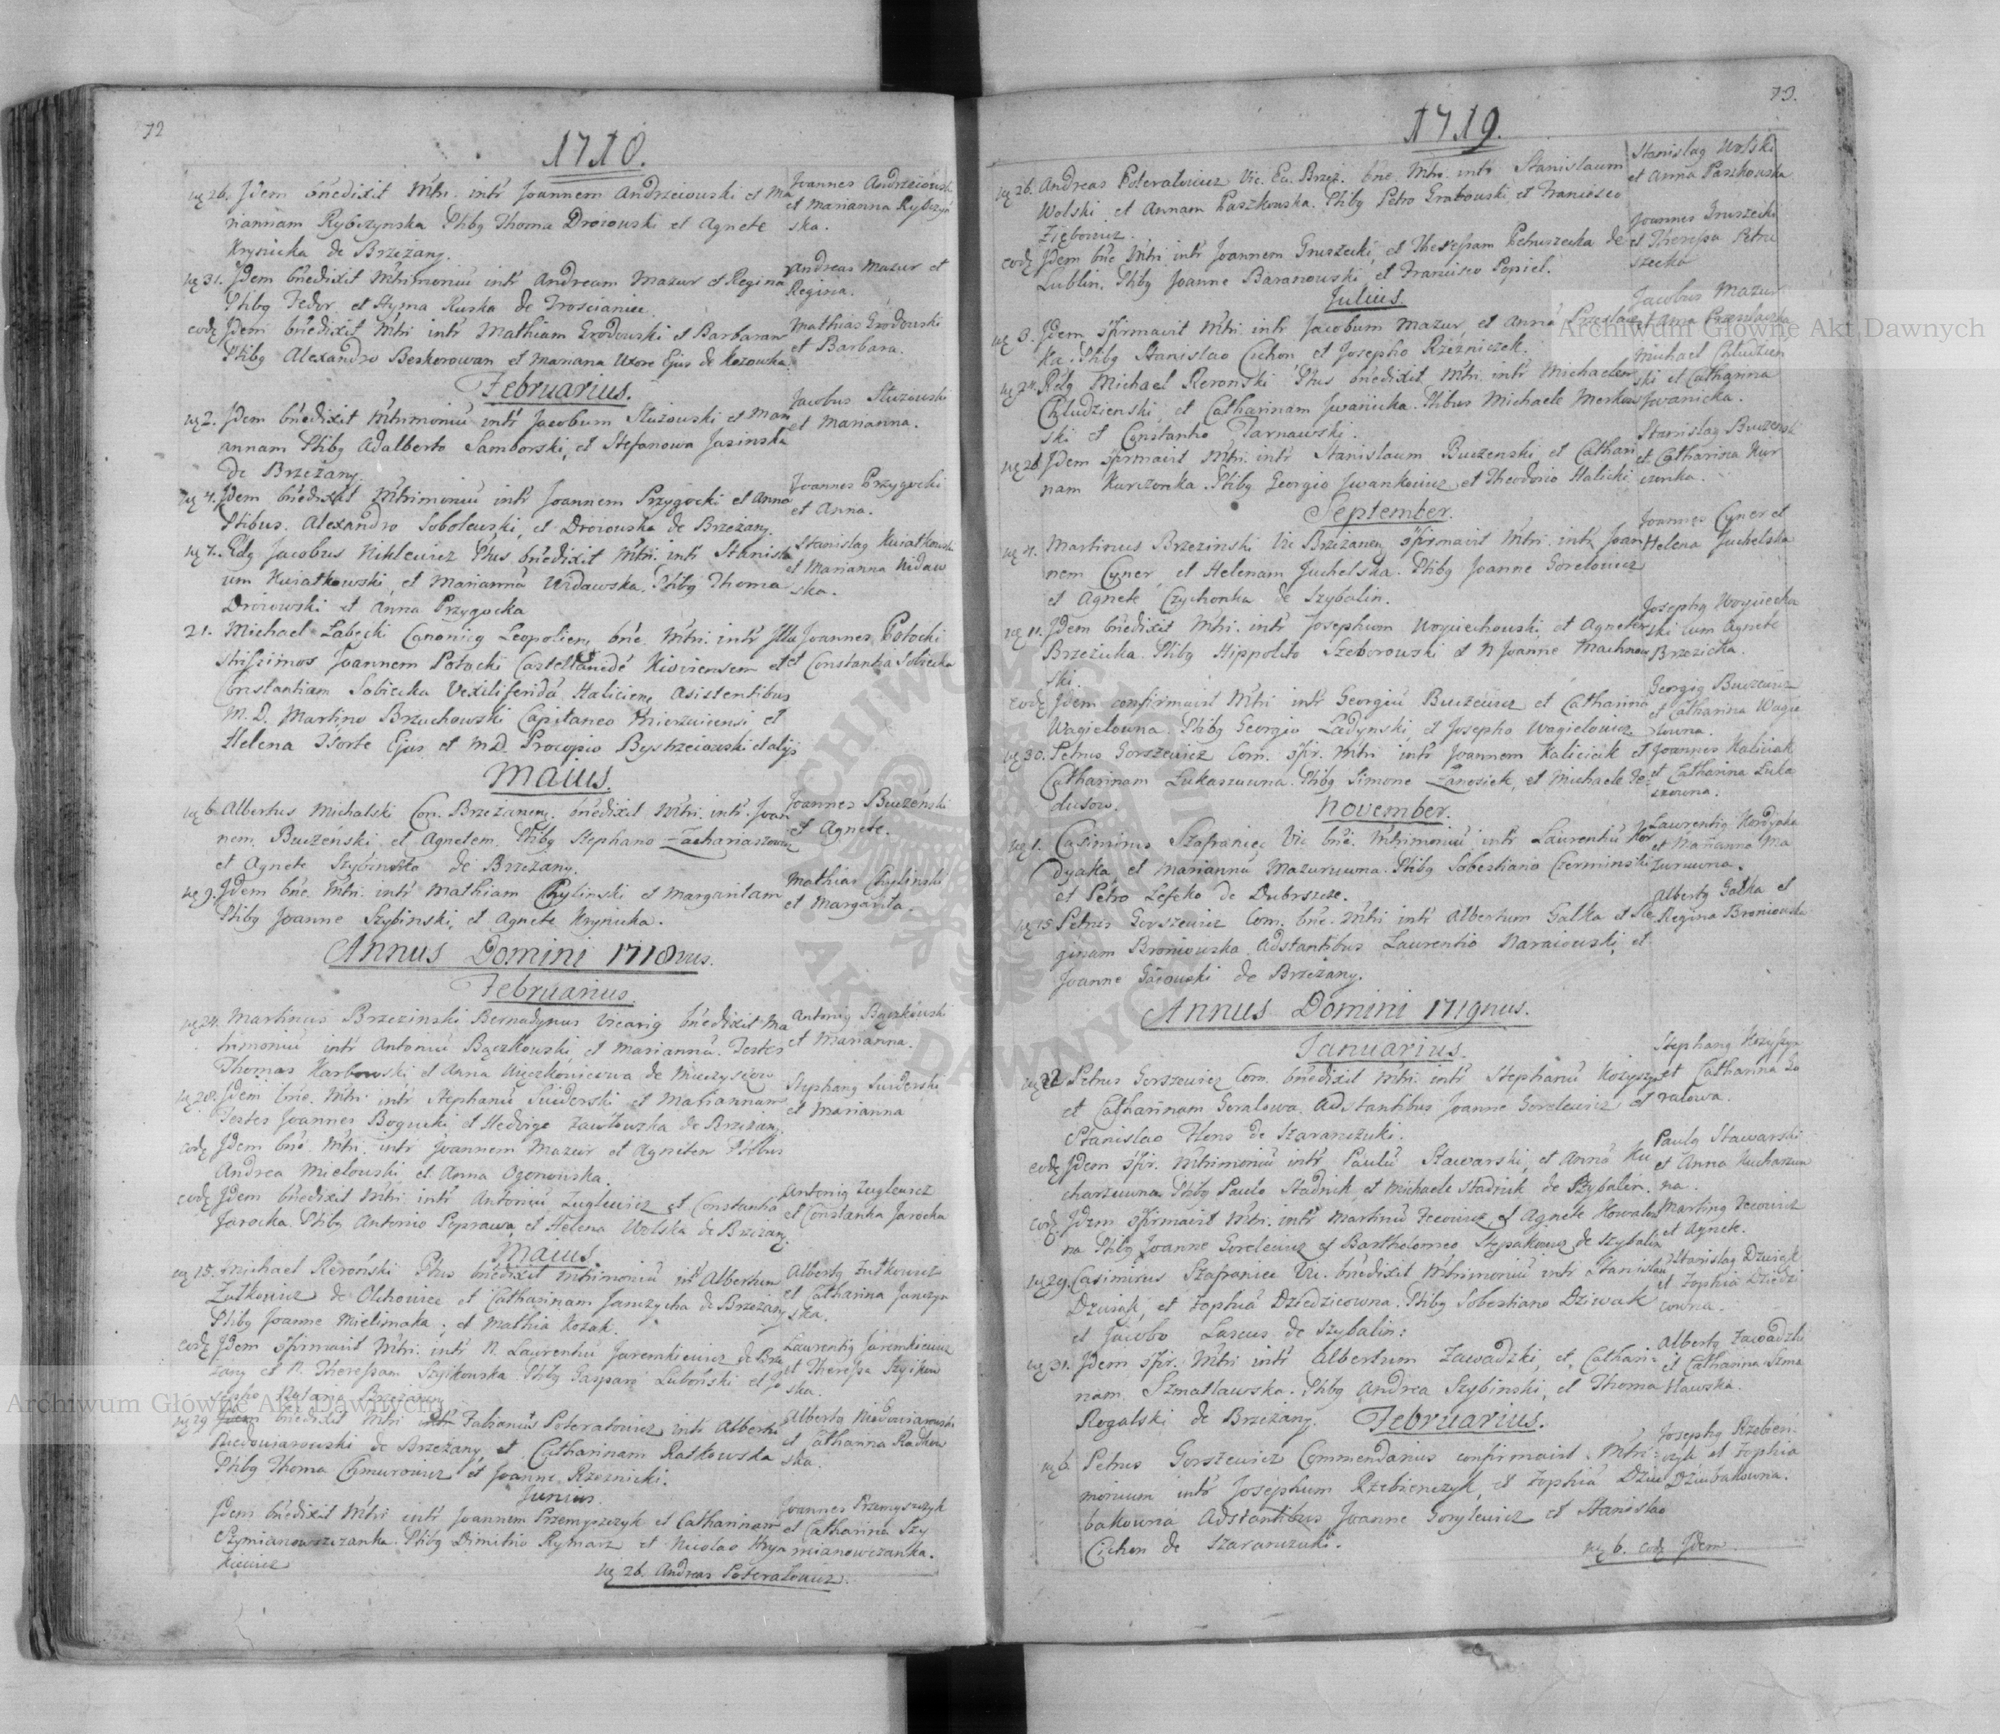 72
1718.
26. Idem bnedixit Mtri. intr Joannem Andrzeiowski et Ma
riannam Rybczynska Ptibg Thoma Droiowski et Agnete
Krynicka de Brzeżany.
Joannes Andrzeiowski
et Marianna Rybczyn
ska.
31. Idem bnedixit Mtrimoniu intr Andream Mazur et Regina
Ptibg Fedor et Hyma Ruska de Troscianiec.
Andreas Mazur et
Regina.
eodg Idem bnedixit Mtri intr Mathiam Grodowski et Barbaram
Ptibg Alexandro Beskorowan et Mariana Uxore Ejus de Kozowka.
Mathias Grodowski
et Barbara.
Februarius.
2. Idem bnedixit Mtrimoniu intr Jacobum Sluzowski et Mari
annam Ptibg Adalberto Samborski, et Stefanowa Jasinska
de Brzeżany
Jacobus Sluzowski
et Marianna.
4. Idem bnedixit Mtrimoniu intr Joannem Przygocki et Anna
Ptibus. Alexandro Sobolewski, et Droiowska de Brzeżany.
Joannes Przygocki
et Anna.
7. Rdg Jacobus Niklewicz Ptus bnedixit Mtri. intr Stanisla
um Kwiatkowski, et Marianna Widawska. Ptibg Thoma
Droiowski et Anna Przygocka
Stanislag Kwiatkowski
et Marianna Widaw
ska.
21. Michael Łabęcki Canonicg Leopolien, bne. Mtri. intr Illu
strissimos Joannem Potocki Castellanidę Kiioviensem et
Constantiam Sobiecka Vexiliferidą Halicien, Asistentibus
M. D. Martino Brzuchowski Capitaneo Mierzwicensi et
Helena Csorte Ejus, et M.D. Procopio Bystrzeiowski et alijs
Joannes Potocki
et Constantia Sobiecka
Maius.
6. Albertus Michalski Com. Brzeżaneng. bnedixit Mtri. intr. Joan
nem. Buczeński et Agnetem. Ptibg Stephano Zachariaszowicz
et Agnete Szybinska de Brzeżany.
Joannes Buczeński
et Agnete.
9. Idem bne. Mtri. intr Mathiam Chylinski et Margaritam
Ptibg Joanne Szybinski, et Agnete Krynicka.
Mathias Chylinski
et Margarita.
Annus Domini 1718vus.
Februarius.
24. Martinus Brzezinski Bernadynus Vicarig bnedixit Ma
trimoniu intr Antoniu Bączkowski, et Mariannu. Testes
Thomas Karbowski et Anna
Antonig Bączkowski
et Marianna.
28. Idem bne. Mtri. intr Stephanu Swiderski et Mariannam
Testes Joannes Bogucki, et Hedvige Zawlowska de Brzeżany
Stephang Swiderski
et Marianna
eodg Idem bne. Mtri. intr Joannem Mazur et Agneten Ptibus
Andrea Mielowski et Anna Ogonowska.
eodg Idem bnedixit Mtri. intr Antoniu Zuglewicz et Constantia
Jarocka. Ptibg Antonio Poprawa, et Helena Wolska de Brzeżany.
Antonig Zuglewicz
et Constantia Jarocka
Maius.
15. Michael Reroński Ptus bnedixit Mtrimoniu intr Albertum
Zutkowicz de Olchowiec et Catharinam Janczycha de Brzeżany
Ptibg Joanne Mielimaka, et Mathia Kozak.
Albertg Zutkowicz
et Catharina Janczyn
ska.
eodg Idem spirmavit Mtri. intr N. Laurentiu Jaremkiewicz de Brze
żany et N. Theressam Szyikowska Ptibg Gasparo Luboński et Jo
Laurentig Jaremkiewicz
et Theressa Szyikow
ska.
29. bnedixit Mtri Fabianus Poteratowicz intr Alberti
Niedowiarowski de Brzeżany, et Catharinam Ratkowska
Ptibg Thoma Chmurowicz et Joanne Rzeznicki.
Albertg Niedowiarowski
et Catharina Radkow
ska.
Junius.
Idem bnedixit Mtri intr Joannem Przemyszczyk et Catharinam
Szymianowszczanka. Ptibg Dimitrio Rymarz et Nicolao Krya
kiewicz
Joannes Przemyszczyk
et Catharina Szy
mianowczanka.
26. Andreas Poteratowicz.
73.
1719.
26. Andreas Poteratowicz Vic. Ec. Brzeż. bne. Mtri. intr Stanislaum
Wolski et Annam Paszkowska. Ptibg Petro Grabowski et Francisco
Ziębowicz.
Stanislag Wolski
et Anna Paszkowska
eodg Idem bne Mtri intr Joannem Gruszecki, et Theressam Petruszecka de
Lublin. Ptibg Joanne Baranowski, et Francisco Popiel.
Joannes Gruszecki
et Theressa Petru
szecka
Julius.
3. Idem spirmavit Mtri. intr Jacobum Mazur et Anna Przeslaw
ka. Ptibg Stanislao Cichon et Josepho Rzeżniczek.
Jacobus Mazur
et Anna Przeslawka
24. Rdg Michael Reronski Ptus bnedixit Mtri. intr Michaelem
Chludzienski, et Catharinam Iwanicka. Ptibus Michaele Merkow
ski et Constantio Tarnawski.
Michael Chludzien
ski et Catharina
Iwanicka.
28. Idem spirmavit Mtri. intr Stanislaum Buczenski, et Cathari
nam Kurczonka. Ptibg Georgio Iwankowicz et Theodorio Halicki
Stanislag Buczenski
et Catharina Kur
czonka.
September.
4. Martinus Brzezinski Vic Brzeżaneng spirmavit Mtri. intr Joan
nem Cyner, et Helenam Juchelska. Ptibg Joanne Gorelowicz
et Agnete Czychonka de Szybalin.
Joannes Cyner et
Helena Juchelska
11. Idem bnedixit Mtri. intr Josephum Woyciechowski, et Agneten
Brzezicka. Ptibg Hippolito Szeborowski et N Joanne Machnow
ski.
Josephg Woyciecho
ski cum Agnete
Brzezicka.
eodg Idem confirmavit Mtri intr Georgiu Buczewicz et Catharina
Wagielowna. Ptibg Georgio Ladynski, et Josepho Wagielowicz
Georgig Buczewicz
et Catharina Wagie
lowna.
30. Petrus Gorszewicz Com. spir. Mtri intr Joannem Kaliciak et
Catharinam Lukaszowna. Ptibg Simone Zarosiek, et Michaele Fe
dusow.
Joannes Kaliciak
et Catharina Luka
szowna.
November.
1. Casimirus Szafraniec Vic bne. Mtrimoniu intr Laurentiu Kor
dyaka, et Mariannu Mazurowna. Ptibg Sobestiano Czerminski
et Petro Lefeko de Dubrszcze.
Laurentig Kordyaka
et Marianna Ma
zurowna.
15 Petrus Gorszewicz Com. bne. Mtri intr Albertum Galka et Re
ginam Broniowska. Adstantibus Laurentio Naraiowski, et
Joanne Gaiowski de Brzeżany.
Albertg Galka et
Regina Broniowska
Annus Domini 1719nus.
Januarius.
22 Petrus Gorszewicz Com. bnedixit Mtri. intr Stephanu Kożyszyn
et Catharinam Goralowa. Adstantibus Joanne Gorelewicz et
Stanislao Hono de Szaranczuki.
Stephang Kożyszyn
et Catharina Go
ralowa.
eodg Idem spir. Mtrimoniu intr Paulu Stawarski, et Anna Ku
charzowna Ptibg Paulo Stadnik, et Michaele Stadnik de Szybalin.
Paulg Stawarski
et Anna Kucharzow
na.
eodg Idem spirmavit Mtri. intr Martinu Fecowicz et Agnete Kowalow
na Ptibg Joanne Gorelewicz et Bartholomeo Stepakowicz de Szybalin
Marting Fecowicz
et Agnete.
29. Casimirus Szafraniec Vic. bnedixit Mtrimoniu intr Stanislau
Dzwiak, et Zophia Dziedzicowna. Ptibg Sobestiano Dziwak
et Jacobo Lascus de Szybalin:
Stanislag Dzwięk
et Zophia Dziedzi
cowna.
31. Idem spir. Mtri intr Albertum Zawadzki, et Cathari-
nam Szmatlawska. Ptibg Andrea Szybinski, et Thoma
Rogalski de Brzeżany.
Albertg Zawadzki
et Catharina Szma
tlawska.
Februarius.
6. Petrus Gorszewicz Commendarius confirmavit Mtri-
monium intr Josephum Rzebienczyk, et Zophia Dziu
bakowna Adstantibus Joanne Gorylewicz et Stanislao
Cichon de Szaranczuki.
Josephg Rzebien
czyk et Zophia
Dziubakowna.
6. eodg Idem
Archiwum Główne Akt Dawnych
Archiwum Główne Akt Dawnych